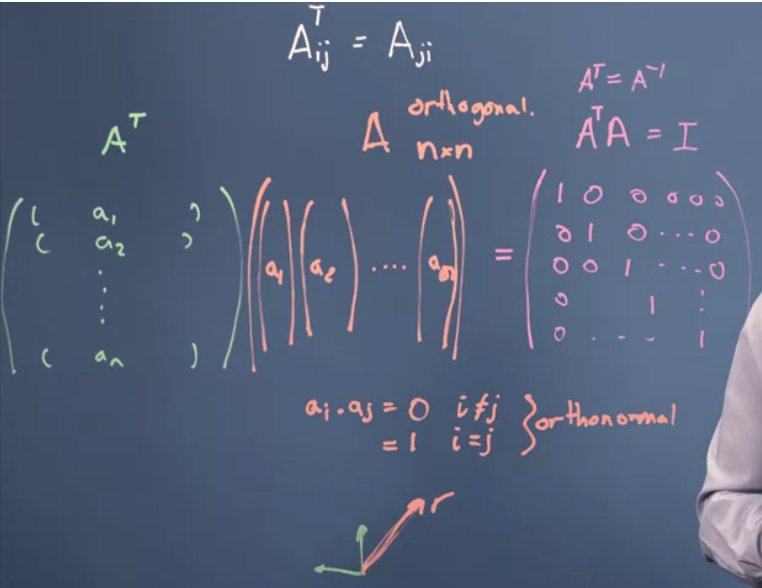 Aᵀij = Aji
Aᵀ
A orthogonal.
n×n
Aᵀ = A⁻¹
AᵀA = I
( a₁ )
( a₂ )
⋮
( aₙ )
(a₁) (a₂) .... (aₙ)
=
1 0 0 0 0 0
0 1 0 ... 0
0 0 1 ... 0
0 1 ⋮
0 . . . 1
aᵢ · aⱼ = 0 i ≠ j
= 1 i = j } orthonormal
r